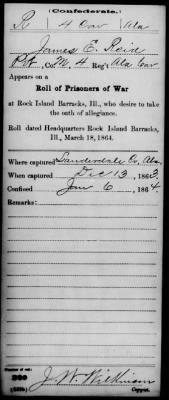 (Confederate.)
R 4 Cav Ala
James E. Reid
Pvt, Co. M, 4 Reg't Ala Cav
Appears on a
Roll of Prisoners of War
at Rock Island Barracks, Ill., who desire to take
the oath of allegiance.
Roll dated Headquarters Rock Island Barracks,
Ill., March 18, 1864.
Where captured Lauderdale Co, Ala.
When captured Dec 13, 1863.
Confined Jan 6, 1864.
Remarks:
Number of roll:
J. W. Wilkinson
Copyist.